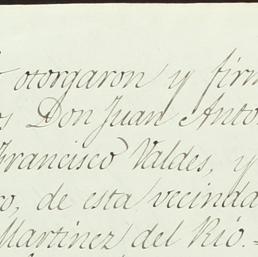 otorgaron y fir
Don Juan Anto
Francisco Valdes, y
de esta vecinda
Martinez del Rio.